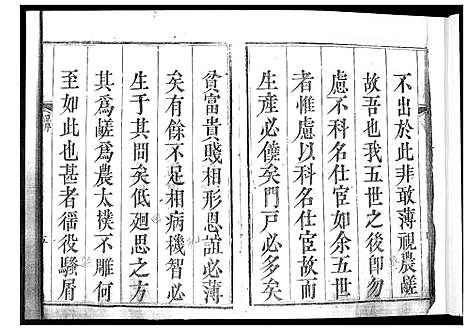 不出於此非敢薄視農鹾
故吾也我五世之後即勿
慮不科名仕宦如余五世
者惟慮以科名仕宦故而
生産必儉矣門戶必多矣
貧富貴賤相形恩誼必薄
矣有餘不足相病機智必
生于其間矣低迴思之方
其爲鹾爲農太樸不雕何
至如此也甚者徭役騷屑
五